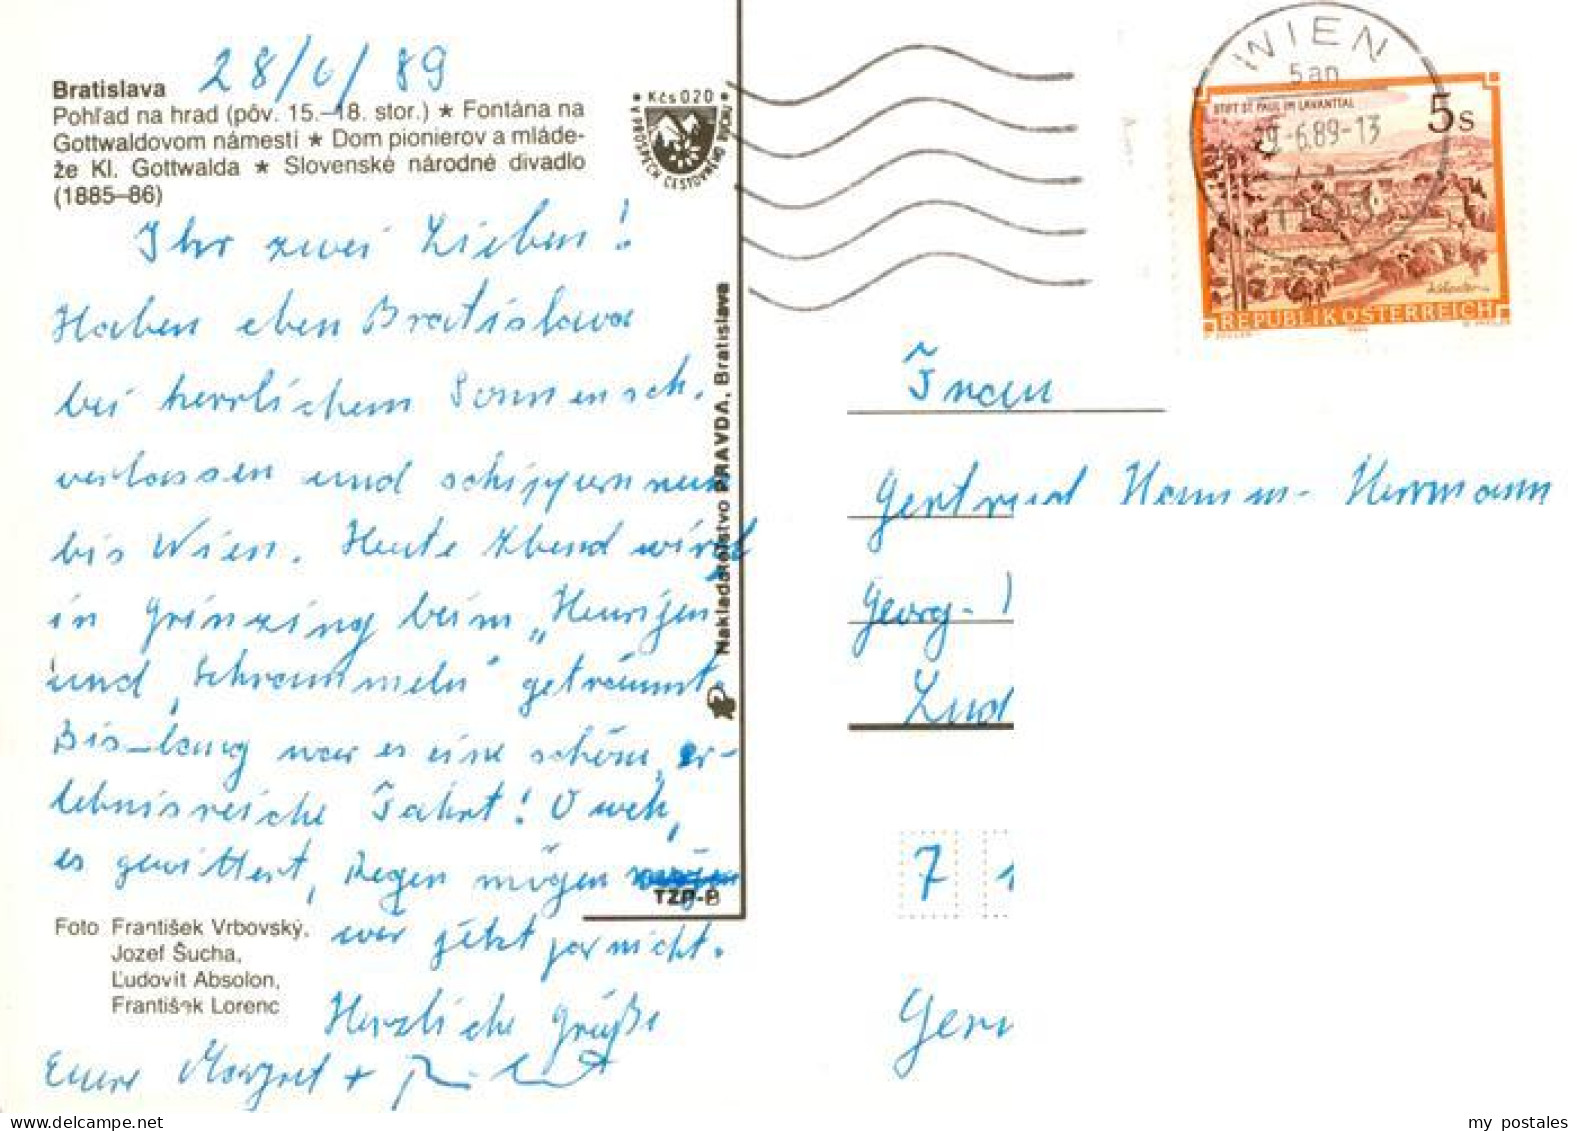 28/6/89
Bratislava
Pohľad na hrad (pôv. 15.–18. stor.) ★ Fontána na
Gottwaldovom námestí ★ Dom pionierov a mláde-
že Kl. Gottwalda ★ Slovenské národné divadlo
(1885–86)
Kčs 0 20
V PROSPECH CESTOVNÉHO RUCHU
Ihr zwei Lieben!
Haben eben Bratislava
bei herrlichem Sonnensch.
verlassen und schippern nun
bis Wien. Heute Abend wird
in Grinzing beim „Heurigen
und „Schrammeln" geträumt.
Bis-lang war es eine schöne, er-
lebnisreiche Fahrt! O weh,
es gewittert, Regen mögen
wir jetzt gar nicht.
Herzliche Grüße
Eure Margret +
Foto František Vrbovský,
Jozef Šucha,
Ľudovít Absolon,
František Lorenc
Nakladateľstvo PRAVDA, Bratislava
TZP-B
WIEN
5an
29.-6.89-13
STIFT ST. PAUL IM LAVANTTAL
5s
REPUBLIK ÖSTERREICH
Frau
Gertrud Hamm-Herrmann
Georg-
Lud
7 1
Ger
my postales